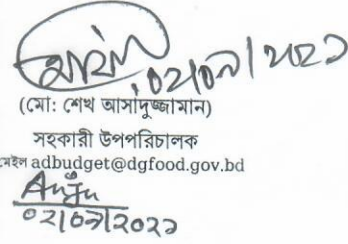 ০২/০৯/২০২১
(মো: শেখ আসাদুজ্জামান)
সহকারী উপপরিচালক
মেইল adbudget@dgfood.gov.bd
Anju
০২/০৯/২০২১